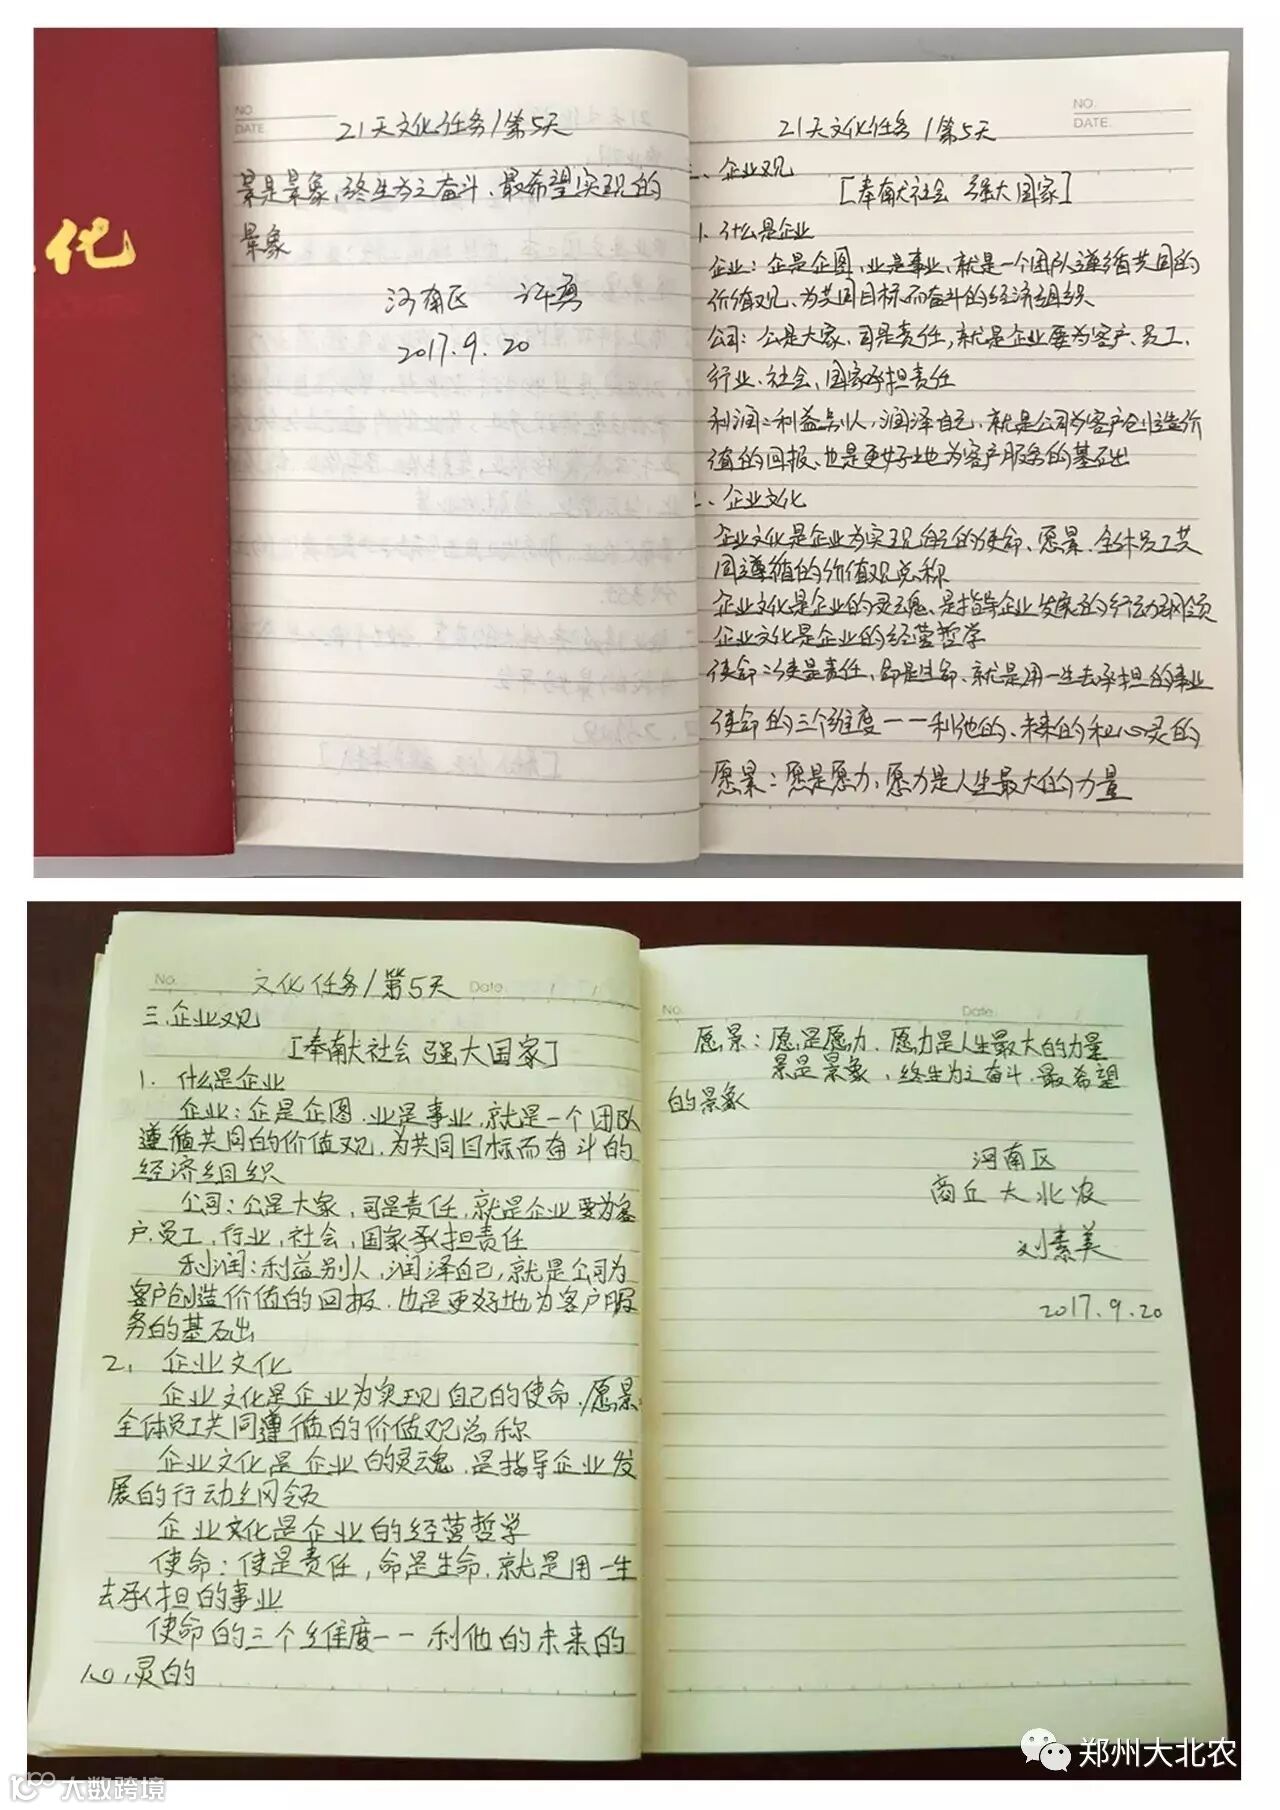 化
NO.
DATE.
21天文化任务/第5天
景是景象,终生为之奋斗、最希望实现的
景象
河南区 许勇
2017.9.20
NO.
DATE.
21天文化任务/第5天
三、企业观
[奉献社会 强大国家]
1. 什么是企业
企业:企是企图,业是事业,就是一个团队遵循共同的
价值观、为共同目标而奋斗的经济组织
公司:公是大家、司是责任,就是企业要为客户、员工、
行业、社会、国家承担责任
利润:利益别人,润泽自己、就是公司为客户创造价
值的回报、也是更好地为客户服务的基础
2、企业文化
企业文化是企业为实现自己的使命、愿景、全体员工共
同遵循的价值观总称
企业文化是企业的灵魂、是指导企业发展的行动纲领
企业文化是企业的经营哲学
使命:使是责任,命是生命、就是用一生去承担的事业
使命的三个维度——利他的、未来的和心灵的
愿景:愿是愿力、愿力是人生最大的力量
No.
文化任务/第5天
Date.
三.企业观
[奉献社会 强大国家]
1. 什么是企业
企业:企是企图.业是事业,就是一个团队
遵循共同的价值观,为共同目标而奋斗的
经济组织
公司:公是大家,司是责任,就是企业要为客
户.员工,行业,社会,国家承担责任
利润:利益别人,润泽自己,就是公司为
客户创造价值的回报.也是更好地为客户服
务的基础
2, 企业文化
企业文化是企业为实现自己的使命.愿景.
全体员工共同遵循的价值观总称
企业文化是企业的灵魂.是指导企业发
展的行动纲领
企业文化是企业的经营哲学
使命:使是责任,命是生命.就是用一生
去承担的事业
使命的三个维度——利他的未来的
心灵的
No.
Date.
愿景:愿是愿力.愿力是人生最大的力量
景是景象,终生为之奋斗.最希望
的景象
河南区
商丘大北农
刘素美
2017.9.20
郑州大北农
大数跨境